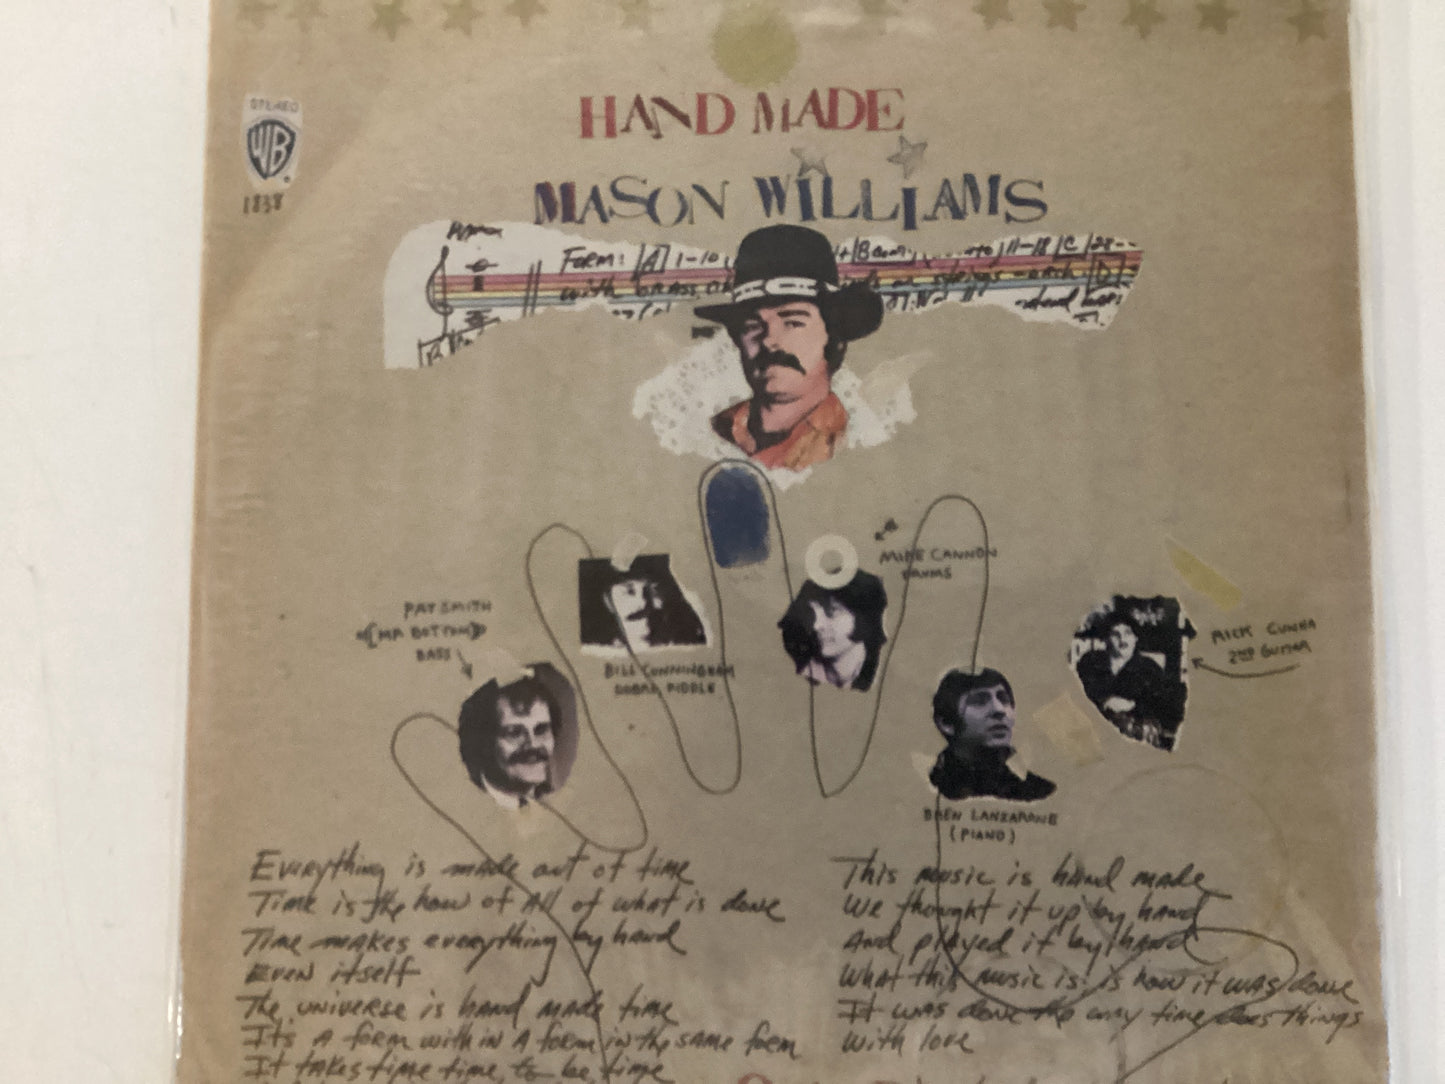 STEREO
WB
1838
HAND MADE
MASON WILLIAMS
FORM: A 1-10
with BRASS
PAT SMITH
(MR BOTTOM)
BASS
BILL CUNNINGHAM
DOBRO, FIDDLE
MIKE CANNON
DRUMS
RICK CUNHA
2ND GUITAR
LANZARONE
(PIANO)
Everything is made out of time
Time is the how of All of what is done
Time makes everything by hand
Even itself
The universe is hand made time
It's A form within A form in the same form
It takes time time, to be time
This music is hand made
We thought it up by hand
And played it by hand
What this music is is how it was done
It was done the way time does things
With love